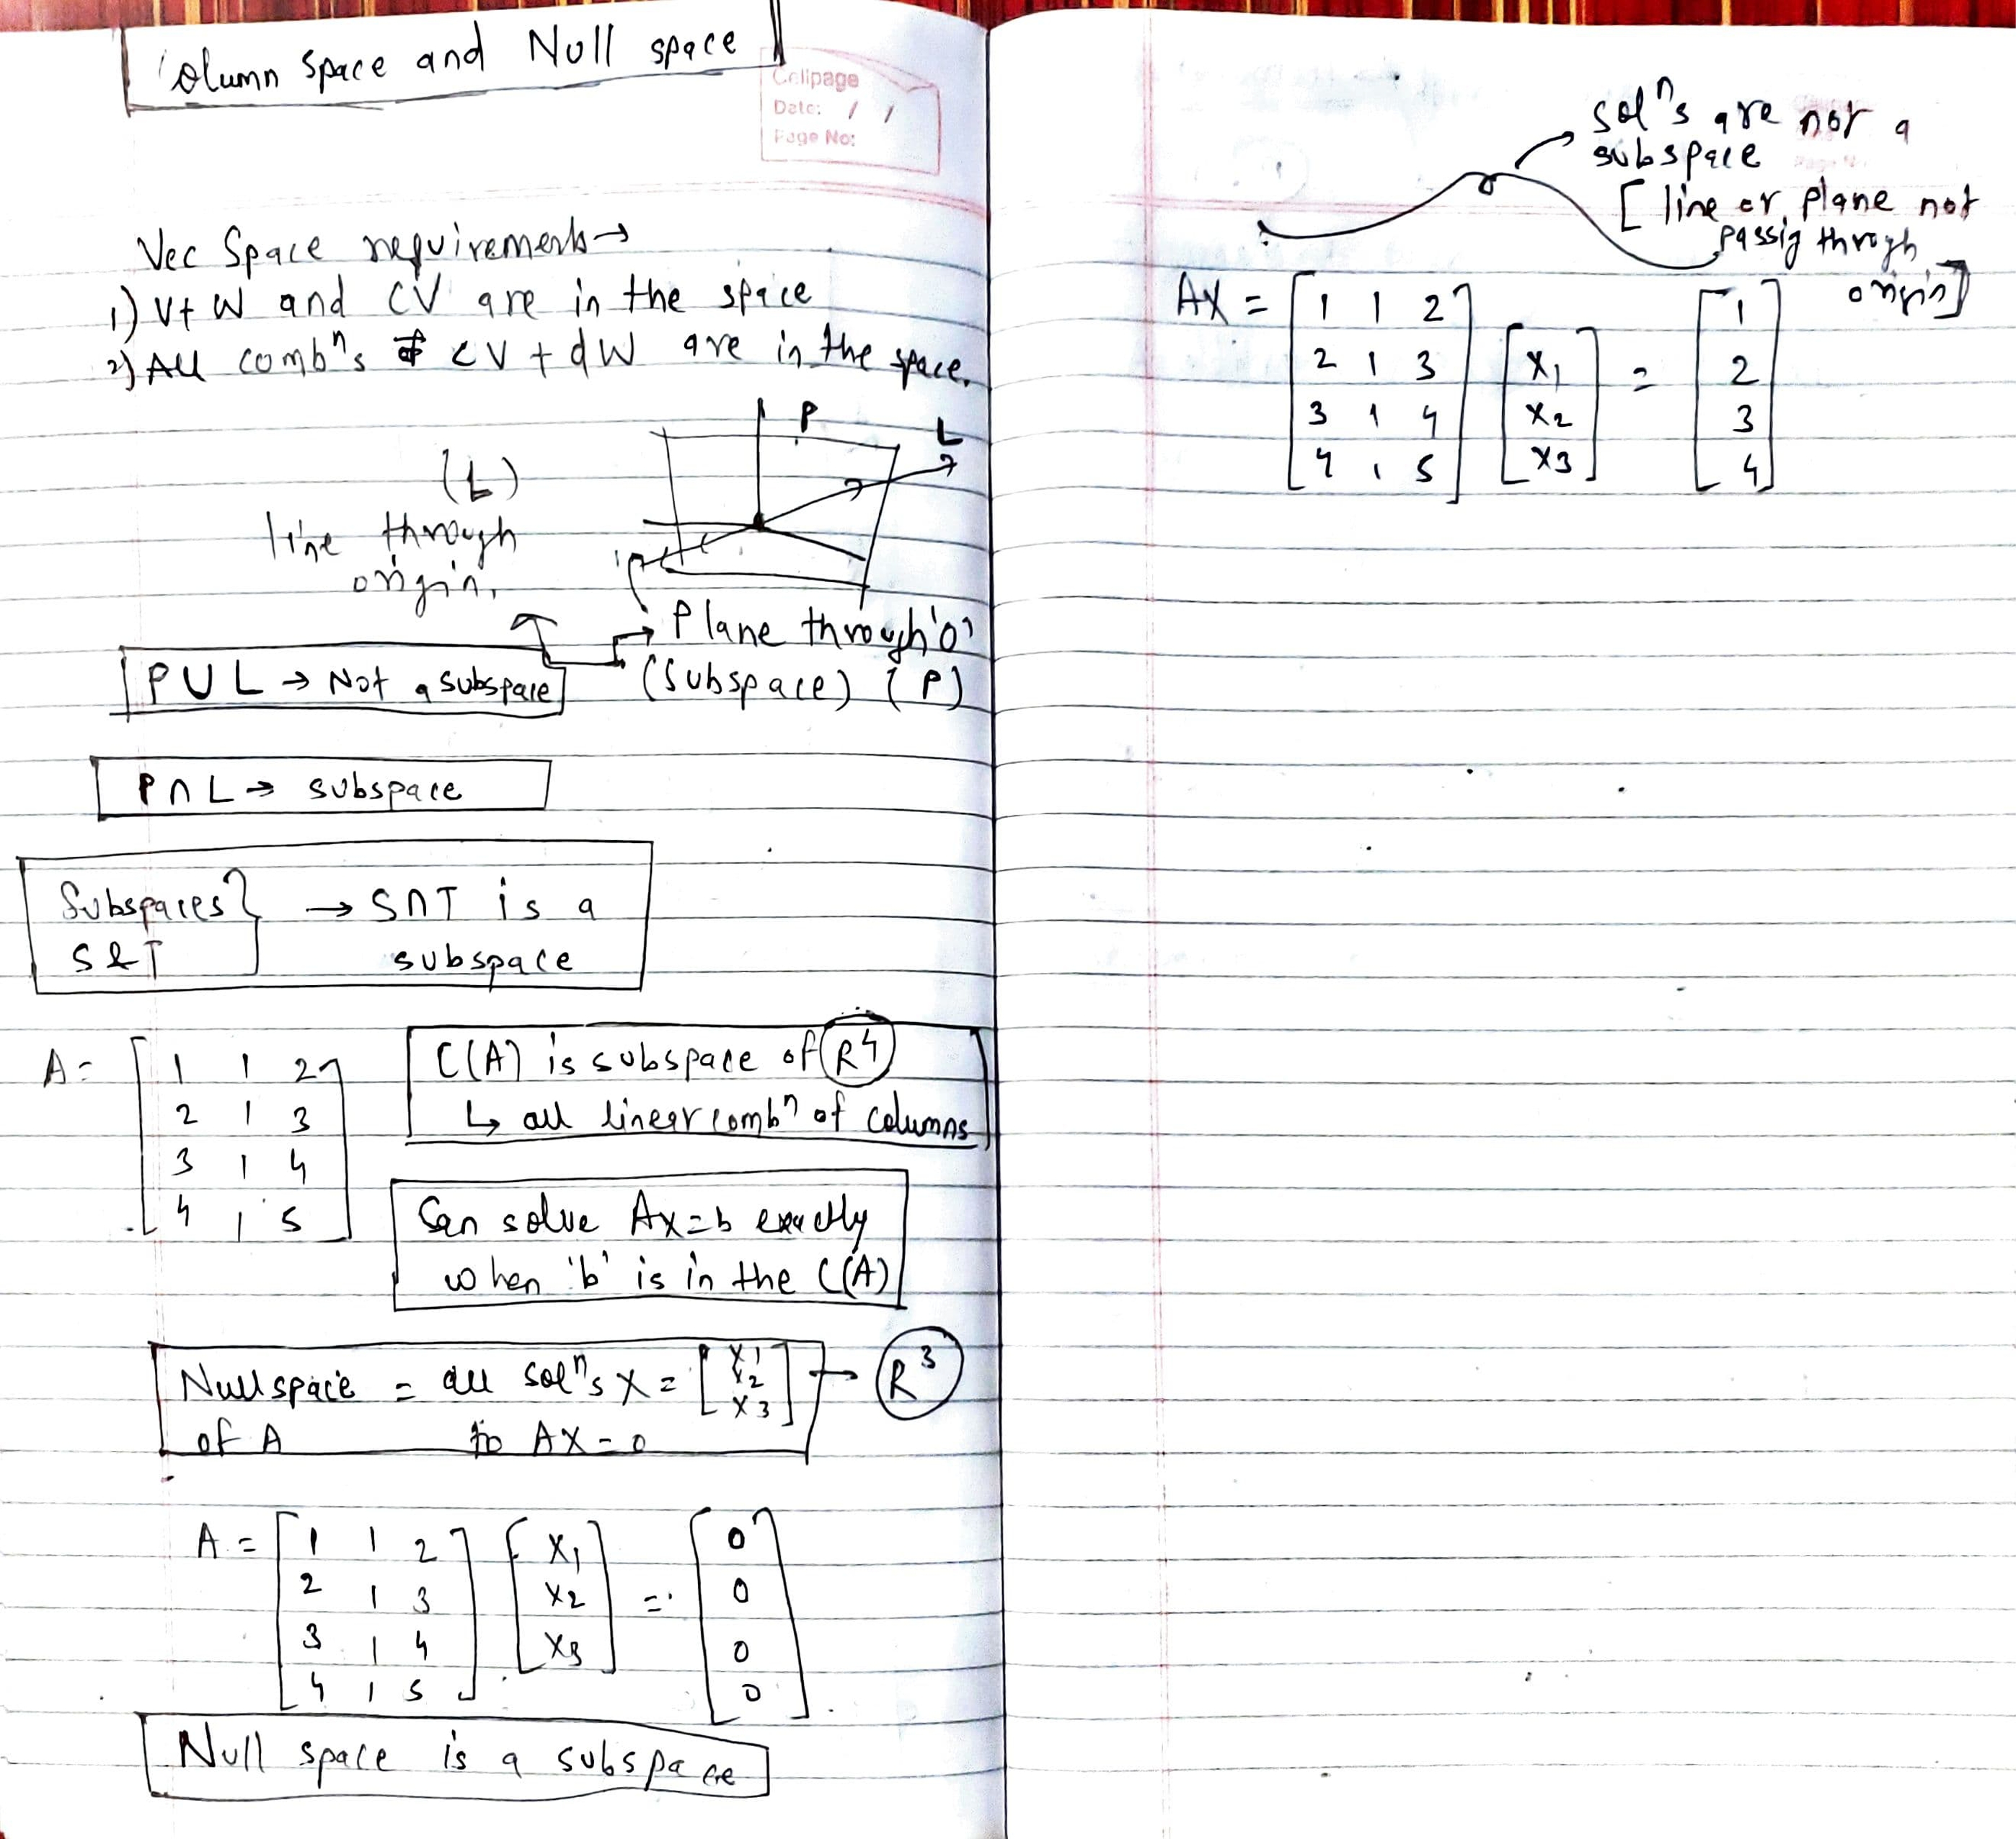 Column Space and Null space
Cellpage
Date: / /
Page No:
Vec Space requirements →
1) V+W and CV are in the space
2) All combⁿs of cV + dW are in the space.
P
L
(L)
line through
origin.
Plane through 'O'
(Subspace) (P)
PUL → Not a subspace
P∩L → subspace
Subspaces } → S∩T is a
S&T subspace
A = [ 1 1 2 ]
2 1 3
3 1 4
4 1 5
C(A) is subspace of R⁴
↳ all linear combⁿ of columns
Can solve Ax=b exactly
when 'b' is in the C(A)
Nullspace = all solⁿs X = [ X1 X2 X3 ] → R³
of A to AX=0
A = [ 1 1 2 ] [ X1 ] = [ 0 ]
2 1 3 X2 0
3 1 4 X3 0
4 1 5 0
Null space is a subspace
solⁿs are not a
subspace
[ line or plane not
passig throgh
origin]
AX = [ 1 1 2 ] [ X1 ] = [ 1 ]
2 1 3 X2 2
3 1 4 X3 3
4 1 5 4